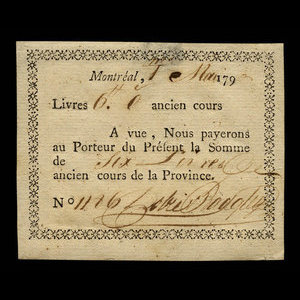 Montréal, 1 Mai 179
Livres 6.tt 0 ancien cours
A vue, Nous payerons
au Porteur du Préſent la Somme
de Six Livres
ancien cours de la Province.
No 1126